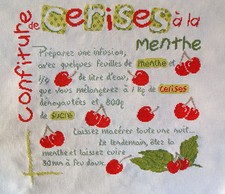 confiture de cerises à la
menthe
Préparez une infusion,
avec quelques feuilles de menthe et
1/4 de litre d'eau,
que vous mélangerez à 1 kg de cerises
dénoyautées et 800g
de sucre
Laissez macérer toute une nuit...
Le lendemain, ôtez la
menthe et laissez cuire
30mn à feu doux